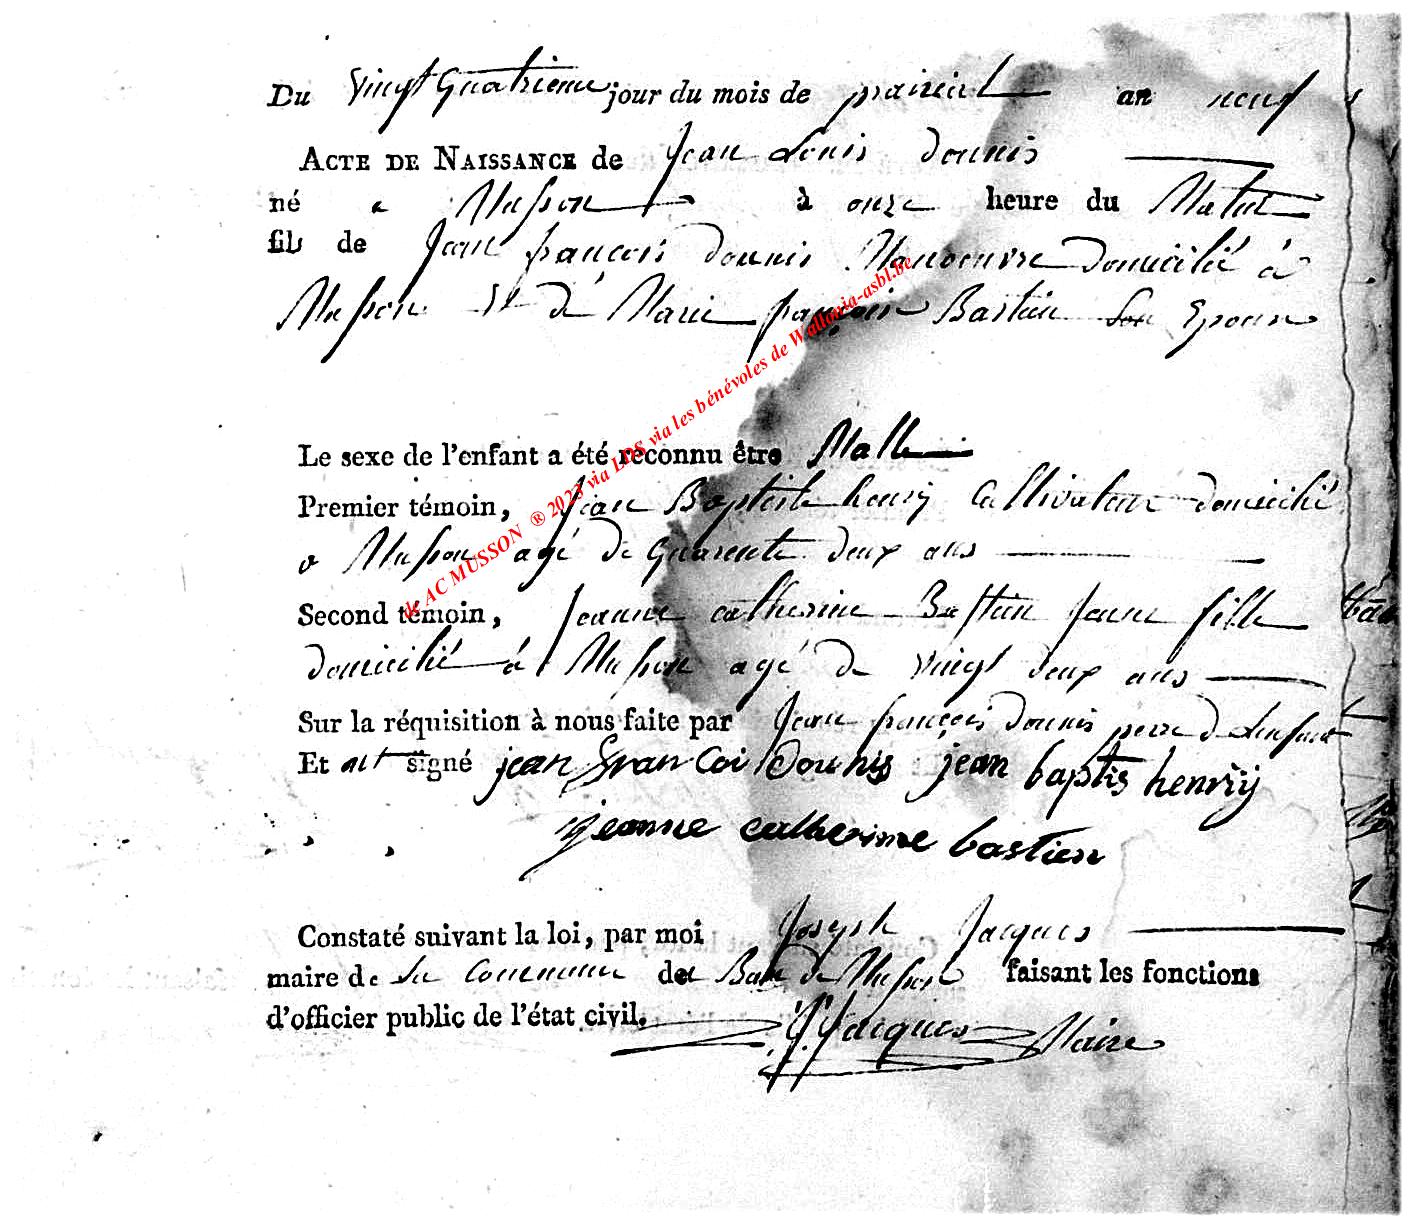 Du vingt quatrieme jour du mois de prairial an neuf
ACTE DE NAISSANCE de Jean Louis Dounis
né a Musson à onze heure du Matin
fils de Jean françois Dounis Manoeuvre domicilié à
Musson Et dé Marie françoise Bastien Son Epouse
Le sexe de l'enfant a été reconnu être Malle
Premier témoin, Jean Baptiste henry Cultivateur domicilié
a Musson agé de quarente deux ans
Second témoin, Jeanne catherine Bastien Jeune fille
domicilié à Musson agé de vingt deux ans
Sur la réquisition à nous faite par Jean françois Dounis perre de Lenfant
Et ont signé jean francoi dounis jean baptis henrÿ
jeanne catherinne bastien
Constaté suivant la loi, par moi Joseph Jacques
maire de La Commune de Musson faisant les fonctions
d'officier public de l'état civil. J. Jacques Maire
de AC MUSSON ® 2023 via LDS via les bénévoles de Wallonia-asbl.be